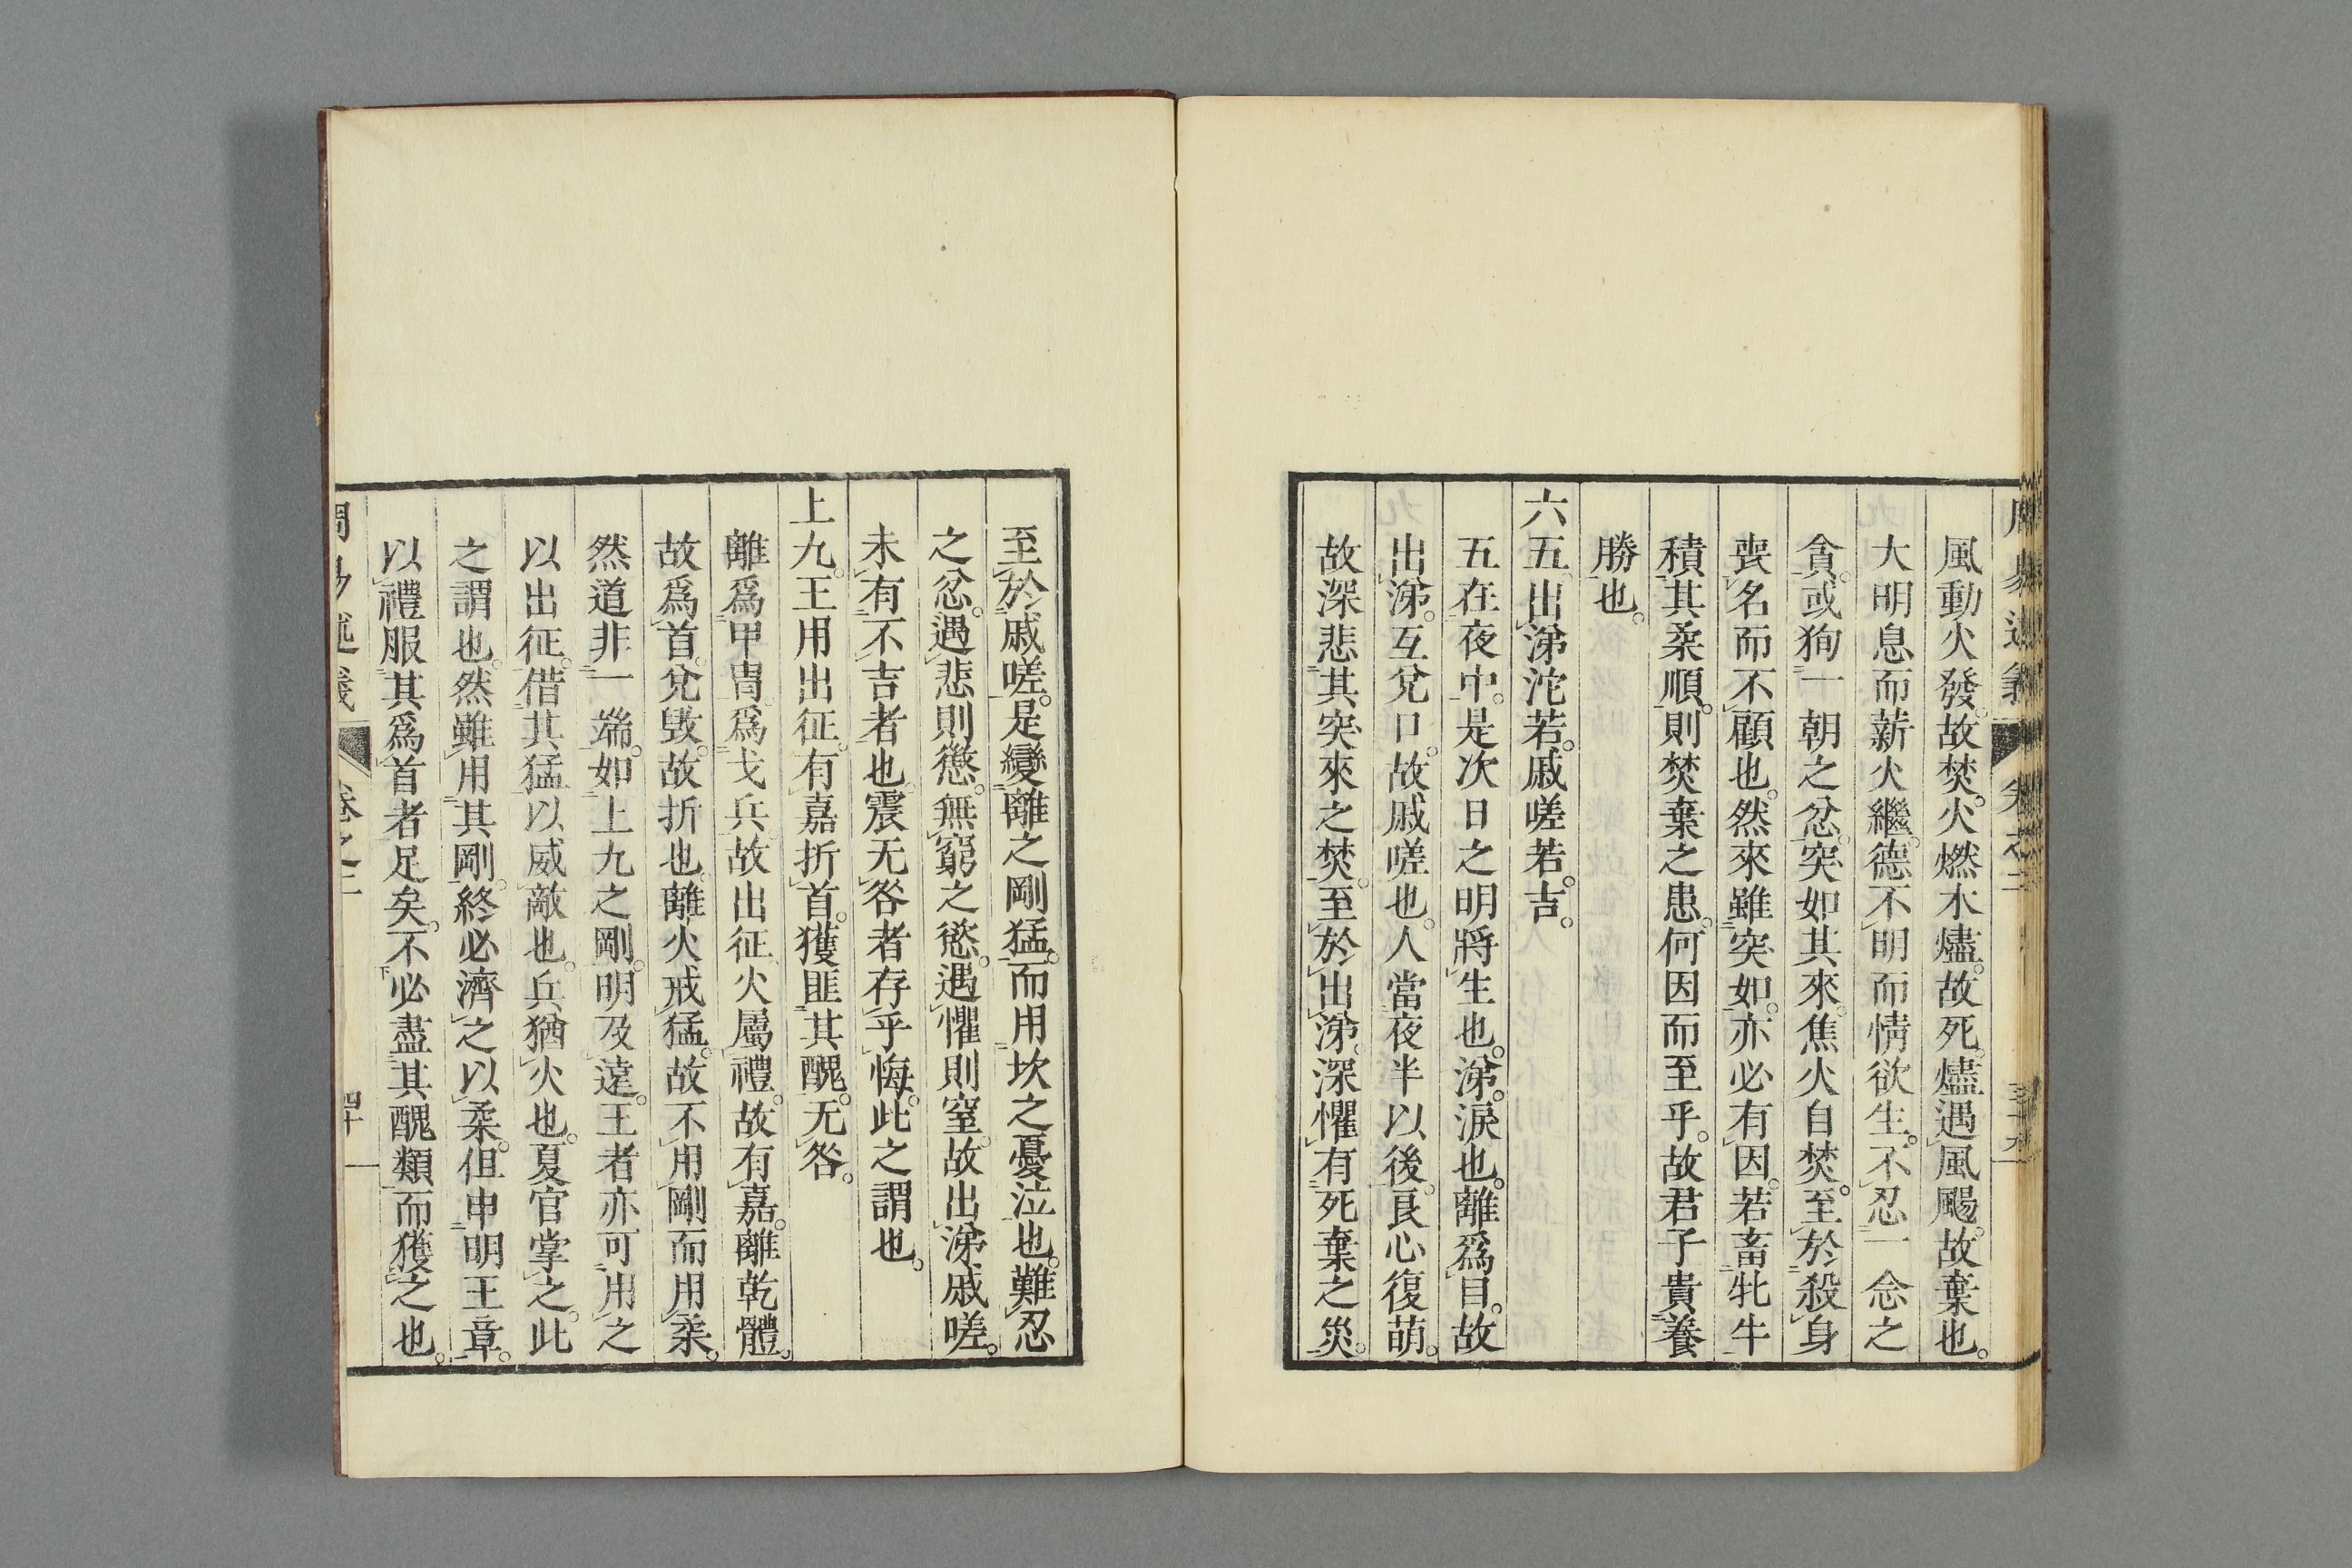 周易述義 卷之二 三十九
風動火發。故焚。火燃木燼。故死。燼遇風颺。故棄也。
大明息而薪火繼。德不明而情欲生。不忍一念之
貪。或狥一朝之忿。突如其來。焦火自焚。至於殺身
喪名而不顧也。然來雖突如。亦必有因。若畜牝牛
積其柔順。則焚棄之患。何因而至乎。故君子貴養
勝也。
六五。出涕沱若。戚嗟若。吉。
五在夜中。是次日之明將生也。涕。淚也。離爲目。故
出涕。互兌口。故戚嗟也。人當夜半以後。良心復萌。
故深悲其突來之焚。至於出涕。深懼有死棄之災。
至於戚嗟。是變離之剛猛。而用坎之憂泣也。難忍
之忿。遇悲則懲。無窮之慾。遇懼則窒。故出涕戚嗟。
未有不吉者也。震无咎者存乎悔。此之謂也。
上九。王用出征。有嘉折首。獲匪其醜。无咎。
離爲甲冑。爲戈兵。故出征。火屬禮。故有嘉。離乾體。
故爲首。兌毀。故折也。離火戒猛。故不用剛而用柔。
然道非一端。如上九之剛。明及遠。王者亦可用之
以出征。借其猛以威敵也。兵猶火也。夏官掌之。此
之謂也。然雖用其剛。終必濟之以柔。但申明王章。
以禮服其爲首者足矣。不必盡其醜類而獲之也。
周易述義 卷之二 四十